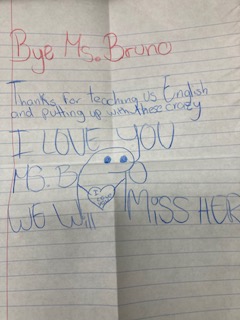 Bye Ms. Bruno
Thanks for teaching us English
and putting up with these crazy
I LOVE YOU
MS. B O
WE WILL MISS HER